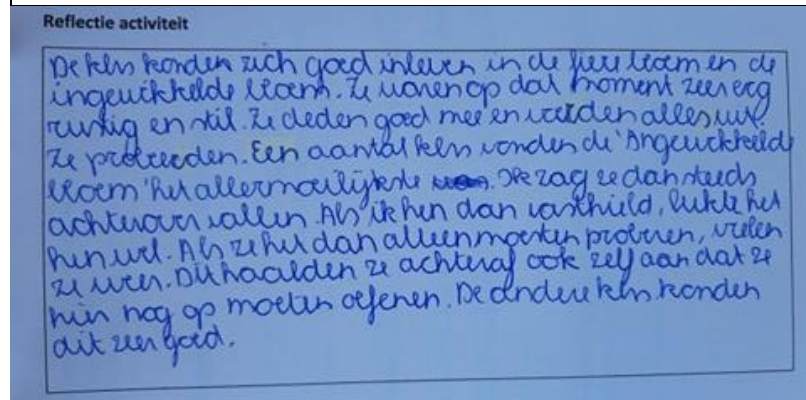 Reflectie activiteit
De kls konden zich goed inleven in de fiere bloem en de
ingewikkelde bloem. Ze waren op dat moment zeer erg
rustig en stil. Ze deden goed mee en alles uit.
Ze probeerden. Een aantal kls vonden de 'Ingewikkelde
bloem' het allermoeilijkste. Ik zag ze dan steeds
achterover vallen. Als ik hen dan vasthield, lukte het
hen wel. Als ze het dan alleen moesten proberen, vielen
ze weer. Dit haalden ze achteraf ook zelf aan dat ze
hier nog op moeten oefenen. De andere kls konden
dit zeer goed.